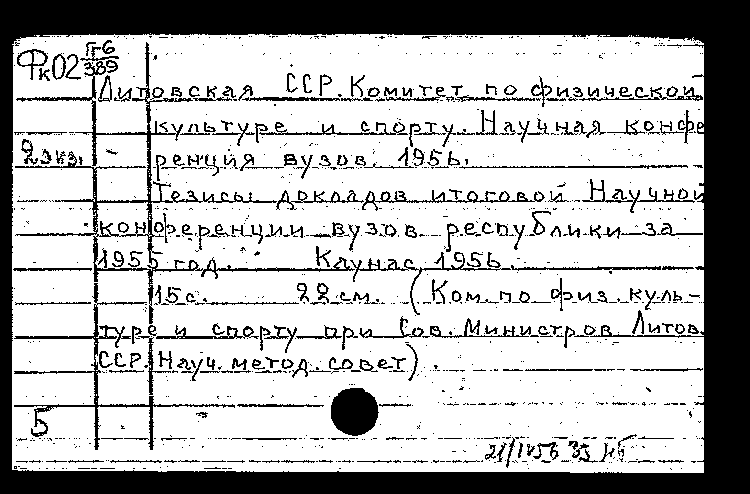 Фк02 П-6
339
Литовская ССР. Комитет по физической
культуре и спорту. Научная конфе
2 экз. - ренция вузов. 1956.
Тезисы докладов итоговой Научной
конференции вузов республики за
1955 год. Каунас, 1956.
15с. 22 см. (Ком. по физ. куль-
туре и спорту при Сов. Министров Литов.
ССР. Науч. метод. совет).
Б